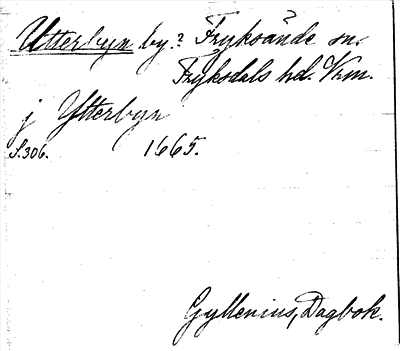 Utterbyn by.? Fryksände sn.
?
Fryksdals hd. Vrm.
j Ytterbyn
S.306. 1665.
Gyllenius, Dagbok.